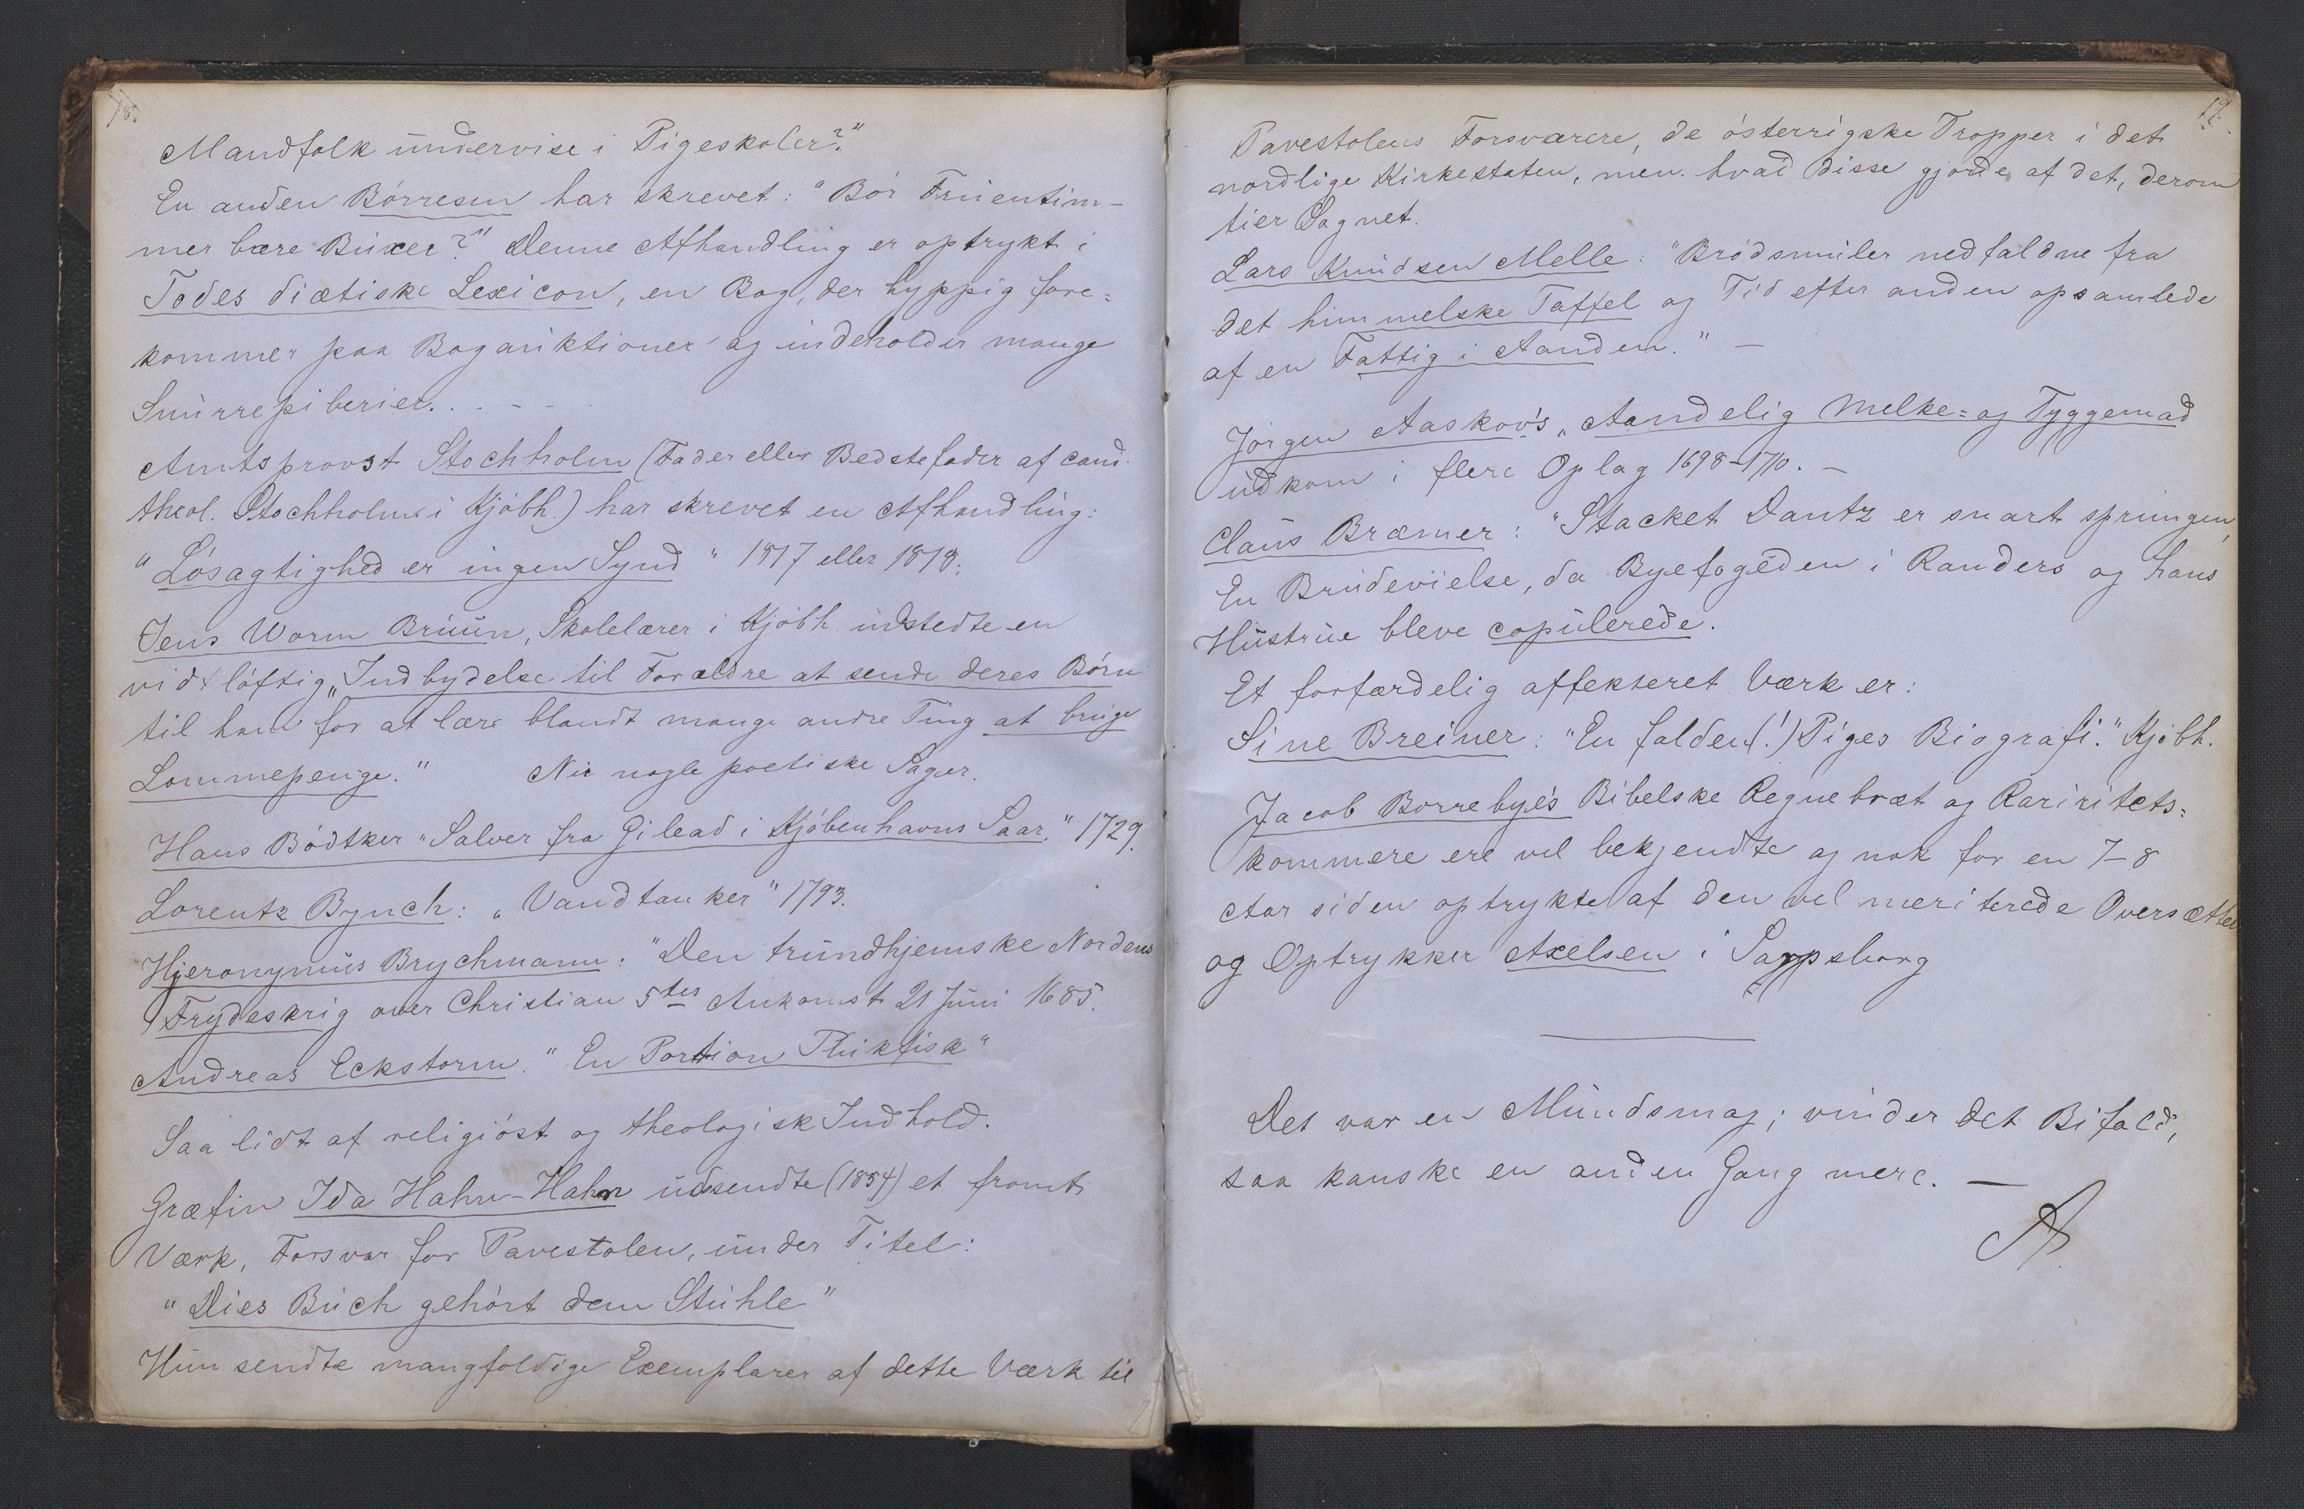 18.
Mandfolk undervise i Pigeskoler?"
En anden Börresen har skrevet: "Bör Fruentim-
mer bære Buxer?" Denne Afhandling er optrykt i
Todes diætiske Lexicon, en Bog, der hyppig fore=
kommer paa Bogauktioner og indeholder mange
Snurrepiberier. . . - -
Amtsprovst Stochholm (Fader eller Bedstefader af cand.
theol. Stochholm i Kjöbh.) har skrevet en Afhandling:
"Lösagtighed er ingen Synd" 1817 eller 1818.
Jens Worm Bruun, Skolelærer i Kjöbh udstedte en
vidtlöftig „Indbydelse til Forældre at sende deres Börn
til ham for at lære blandt mange andre Ting at bruge
Lommepenge." Nu nogle poetiske Sager.
Hans Bödtker "Salver fra Gilead i Kjöbenhavns Saar." 1729.
Lorentz Bynch: „Vandtanker" 1793.
Hjeronymus Brychmann: "Den trundhjemske Nordens
Frydeskrig over Christian 5tes Ankomst 21 Juni 1685.
Andreas Eckstorm. "En Portion Plukfisk"
Saa lidt af religiöst og theologisk Indhold.
Græfin Ida Hahn-Hahn udsendte (1854) et fromt
Værk, Forsvar for Pavestolen, under Titel:
"Dies Buch gehört dem Stuhle"
Hun sendte mangfoldige Exemplarer af dette Værk til
19.
Pavestolens Forsvarere, de österrigske Tropper i det
nordlige Kirkestaten, men hvad disse gjorde af det, derom
tier Sagnet.
Lars Knudsen Melle: "Brödsmuler nedfaldne fra
det himmelske Taffel og Tid efter anden opsamlede
af en Fattig i Aanden." —
Jörgen Aaskov's „Aandelig Melke= og Tyggemad
udkom i flere Oplag 1698-1710. —
Claus Bræmer: "Stacket Dantz er snart sprungen,
En Brudevielse, da Byefogeden i Randers og hans
Hustrue bleve copulerede.
Et forfærdelig affekteret Værk er:
Sine Breiner: "En falden(!) Piges Biografi." Kjöbh.
Jacob Borrebye's Bibelske Regnebræt og Raritets=
kammere ere vel bekjendte og nok for en 7-8
Aar siden optrykte af den vel meriterede Oversætter
og Optrykker Axelsen i Sarpsborg
Det var en Mundsmag; vinder det Bifald,
saa kanske en anden Gang mere. —
A.